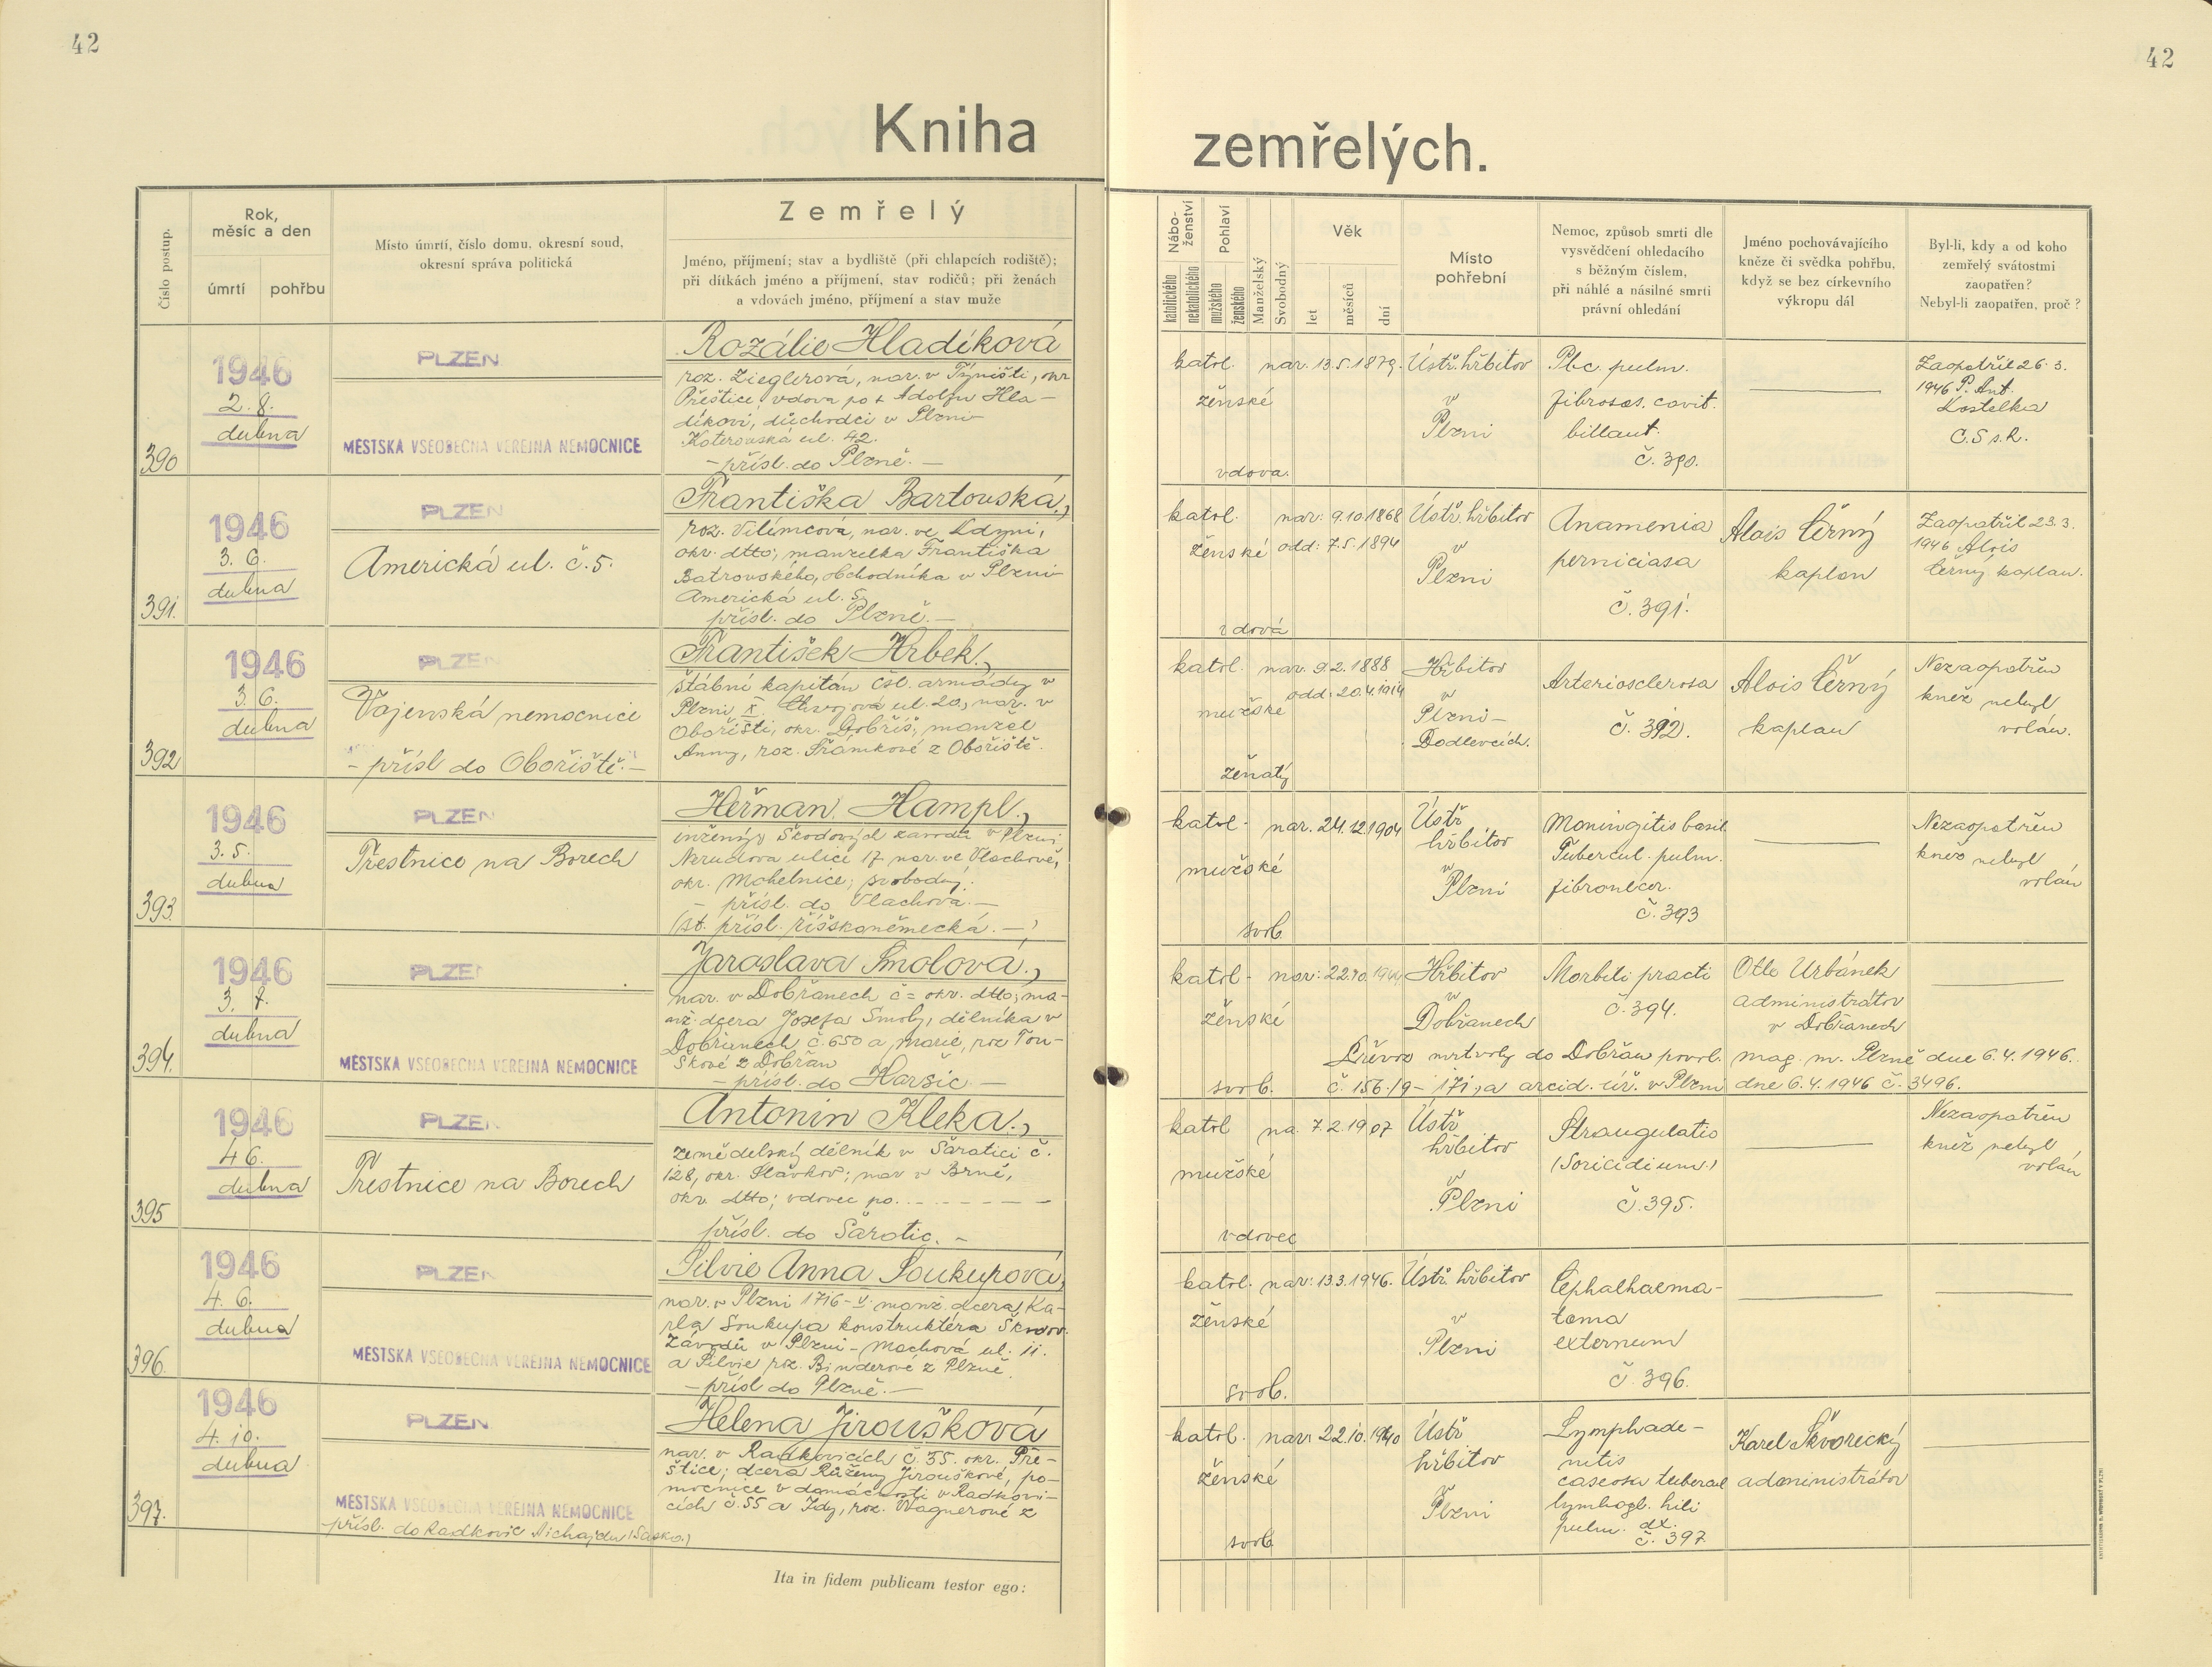 42
42
Kniha
zemřelých.
Číslo postup.
Rok,
měsíc a den
úmrtí
pohřbu
Místo úmrtí, číslo domu, okresní soud,
okresní správa politická
Zemřelý
Jméno, příjmení; stav a bydliště (při chlapcích rodiště);
při dítkách jméno a příjmení, stav rodičů; při ženách
a vdovách jméno, příjmení a stav muže
Nábo-
ženství
katolického
nekatolického
Pohlaví
mužského
ženského
Manželský
Svobodný
Věk
let
měsíců
dní
Místo
pohřební
Nemoc, způsob smrti dle
vysvědčení ohledacího
s běžným číslem,
při náhlé a násilné smrti
právní ohledání
Jméno pochovávajícího
kněze či svědka pohřbu,
když se bez církevního
výkropu dál
Byl-li, kdy a od koho
zemřelý svátostmi
zaopatřen?
Nebyl-li zaopatřen, proč?
390
1946
2. 8.
dubna
PLZEN
MESTSKA VSEOBECNA VEREJNA NEMOCNICE
Rozálie Hladíková
roz. Zieglerová, nar. v Týništi, okr
Přeštice, vdova po † Adolfu Hla-
díkovi, důchodci v Plzni
Koterovská ul. 42.
- přísl. do Plzně. -
katol.
ženské
vdova.
nar. 13.5.1879.
Ústř. hřbitov
v
Plzni
Pbc. pulm.
fibroses. cavit.
billaut.
č. 390.
Zaopatřil 26. 3.
1946 P. Ant.
Kostelka
C.S s.R.
391.
1946
3. 6.
dubna
PLZEN
Americká ul. č. 5.
Františka Bartouská.,
roz. Vilímcová, nar. ve Kdyni,
okr. dtto; manželka Františka
Batrovského, obchodníka v Plzni
Americká ul. 5
přísl. do Plzně. -
katol.
ženské
vdová
nar: 9.10.1868
odd: 7.5.1894
Ústř. hřbitov
v
Plzni
Anamenia
perniciasa
č. 391.
Alois Černý
kaplan
Zaopatřil 23. 3.
1946 Alois
Černý kaplan.
392
1946
3. 6.
dubna
PLZEN
Vojenská nemocnice
- přísl do Obořiště. -
František Hrbek.,
štábní kapitán čsl. armády v
Plzni X. Chvojova ul. 20, nar. v
Obořišti, okr. Dobříš; manžel
Anny, roz. Šrámkové z Obořiště.
katol.
mužské
ženatý
nar. 9.2.1888
odd: 20.4.1914
Hřbitov
v
Plzni-
Doudlevcích.
Arteriosclerosa
č. 392.
Alois Černý
kaplan
Nezaopatřen
kněz nebyl
volán.
393.
1946
3. 5.
dubna
PLZEN
Trestnice na Borech
Heřman Hampl.,
inženýr Škodových závodů v Plzni
Nerudova ulice 17 nar. ve Vlachově,
okr. Mohelnice; svobodný.
- přísl. do Vlachova. -
(st. přísl. říšskoněmecká. -)
katol.
mužské
svob.
nar. 24.12.1904
Ústř
hřbitov
v
Plzni
Moningitis basil.
Tubercul. pulm.
fibronecer.
č. 393
Nezaopatřen
kněz nebyl
volán
394.
1946
3. 7.
dubna
PLZEN
MESTSKA VSEOBECNA VEREJNA NEMOCNICE
Jaroslava Smolová.,
nar. v Dobřanech č= okr. dtto; ma-
nž. dcera Josefa Smoly, dělníka v
Dobřanech č. 650 a, Marie, roz Tou-
škové z Dobřan
- přísl. do Haršic -
katol.
ženské
svob.
nar: 22.10.1944
Hřbitov
v
Dobřanech
Morbili practi
č. 394.
Otto Urbánek
administrátor
v Dobřanech
Převoz mrtvoly do Dobřan povol. mag. m. Plzně dne 6. 4. 1946.
č. 156./9- 171, a arcid. úř. v Plzni dne 6. 4. 1946 č. 3496.
395
1946
4 6.
dubna
PLZEN
Trestnice na Borech
Antonín Kleka.,
zemědelský dělník v Šaratici č.
128, okr. Slavkov; nar v Brně,
okr. dtto; vdovec po. - - - -
přísl. do Šaratic. -
katol
mužské
vdovec
na. 7.2.1907
Ústř
hřbitov
v
Plzni
Strangulatio
(Soricidium.)
č. 395.
Nezaopatřen
kněz nebyl
volán
396.
1946
4. 6.
dubna
PLZEN
MESTSKA VSEOBECNA VEREJNA NEMOCNICE
Silvie Anna Soukupová,
nar. v Plzni 1716-V. manž. dcera Ka-
rla Soukupa konstruktéra Škodov.
Závodů v Plzni - Machová ul. 11.
a Silvie roz. Binderové z Plzně.
- přísl do Plzně. -
katol.
ženské
svob.
nar: 13.3.1946.
Ústř. hřbitov
v
Plzni
Cephalhaema-
toma
externum
č. 396.
397.
1946
4. 10.
dubna
PLZEN
MESTSKA VSEOBECNA VEREJNA NEMOCNICE
- přísl. do Radkovic Aichajdu (Sasko.)
Helena Jiroušková
nar. v Radkovicích č. 35. okr. Pře-
štice; dcera Růženy Jirouškové, po-
mocnice v domácnosti v Radkovi-
cích č. 55 a Idy, roz. Wagnerové z
katol.
ženské
svob
nar: 22.10.1940
Ústř
hřbitov
v
Plzni
Lymphade-
nitis
caseosa tubercul
lymhogl. hili
pulm. dx.
č. 397
Karel Škvorecký
administrátor
Ita in fidem publicam testor ego: